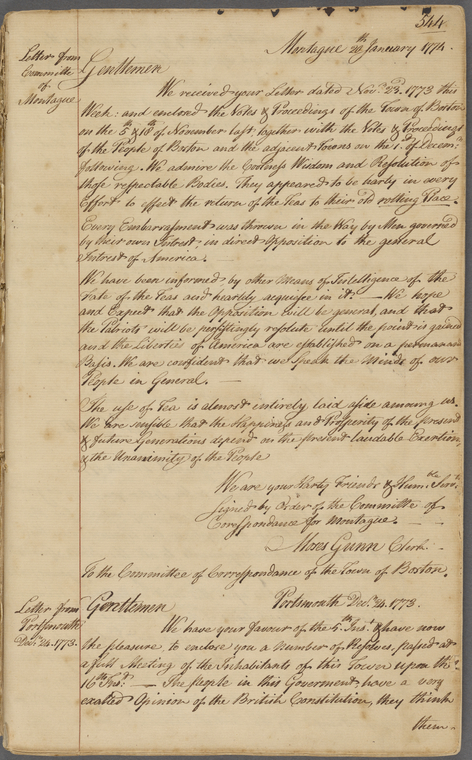 544
Letter from
Committe
of
Montague
Montague 28th January 1774.
Gentlemen
We received your Letter dated Novr. 23d. 1773 this
Week: and enclosed the Votes & Proceedings of the Town of Boston
on the 5th & 18th of November last, together with the Votes & Proceedings
of the People of Boston and the adjacent Towns on the 1st. of Decemr.
following. We admire the Coolness Wisdom and Resolution of
those respectable Bodies. They appeared to be harty in every
Effort to effect the return of the Teas to their old rotting Place.
Every Embarrassment was thrown in the Way by Men governed
by their own Intrest; in direct opposition to the general
Intrest of America. —
We have been informed by other Means of Intelligence of the
Fate of the Teas and heartily acquiesce in it: — We hope
and Expect that the Opposition will be general, and that
the Patriots will be persistingly resolute until the point is gained
and the Liberties of America are established on a permanent
Basis. We are confident that we speak the Minds of our
People in General. —
The use of Tea is almost entirely laid aside among us.
We are sensible that the Happiness and Prosperity of the present
& future Generations depend on the present laudable Exertion,
& the Unanimity of the People
We are your Harty Friends & Humble Servt.
Signed by Order of the Committe of
Correspondance for Montague. —
Moses Gunn Clerk. —
To the Committee of Correspondance of the Town of Boston.
Letter from
Portsmouth
Decr. 24. 1773.
Gentlemen
Portsmouth Decr. 24. 1773.
We have your favour of the 5th Inst. & have now
the pleasure to enclose you a Number of Resolves, passed at
a full Meeting of the Inhabitants of this Town upon the
16th Inst. — The people in this Goverment have a very
exalted Opinion of the British Constitution, they think
them